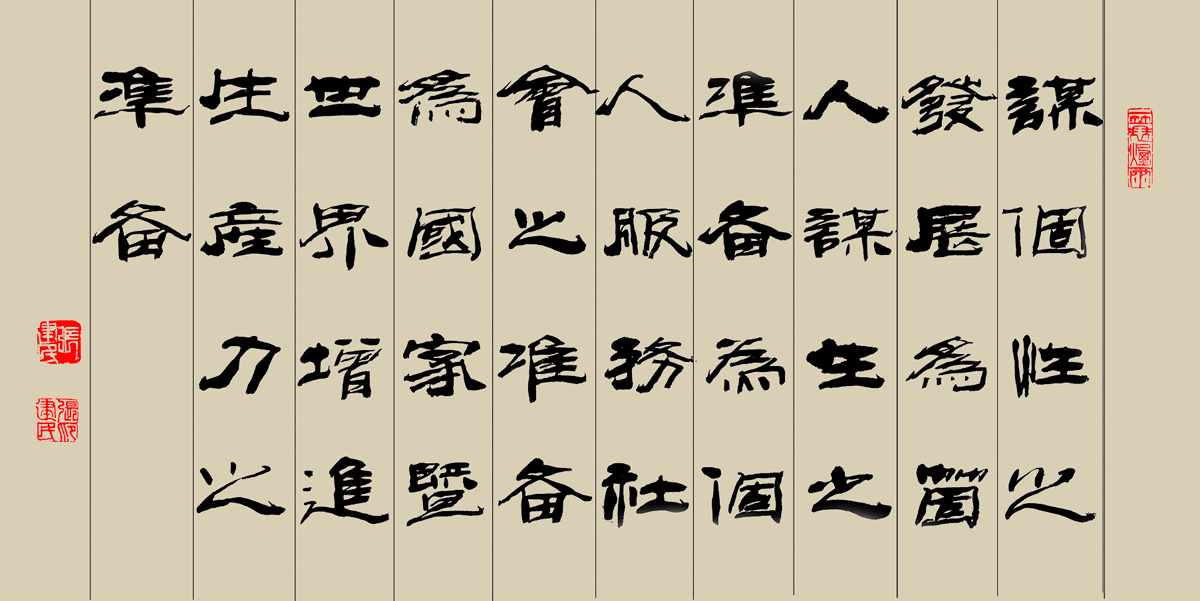 謀個性之
發展為箇
人謀生之
準备為個
人服務社
會之准备
為國家暨
世界增進
生産力之
準备